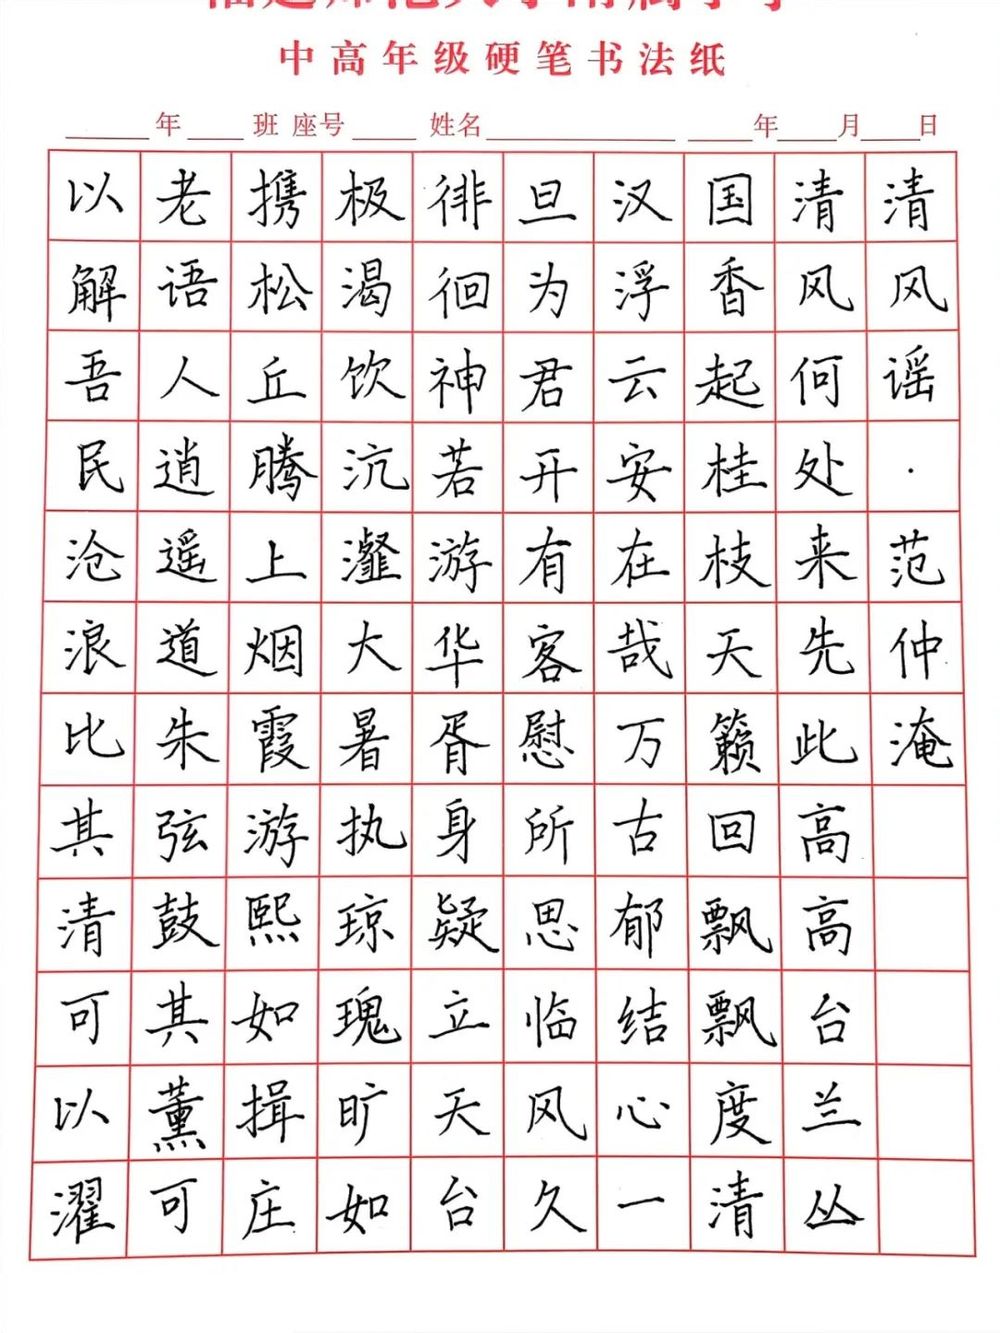 中高年级硬笔书法纸
年 班 座号 姓名 年 月 日
清风谣·范仲淹
清风何处来先此高高台兰丛
国香起桂枝天籁回飘飘度清
汉浮云安在哉万古郁结心一
旦为君开有客慰所思临风久
徘徊神若游华胥身疑立天台
极渴饮沆瀣大暑执琼瑰旷如
携松丘腾上烟霞游熙如揖庄
老语人逍遥道朱弦鼓其薰可
以解吾民沧浪比其清可以濯